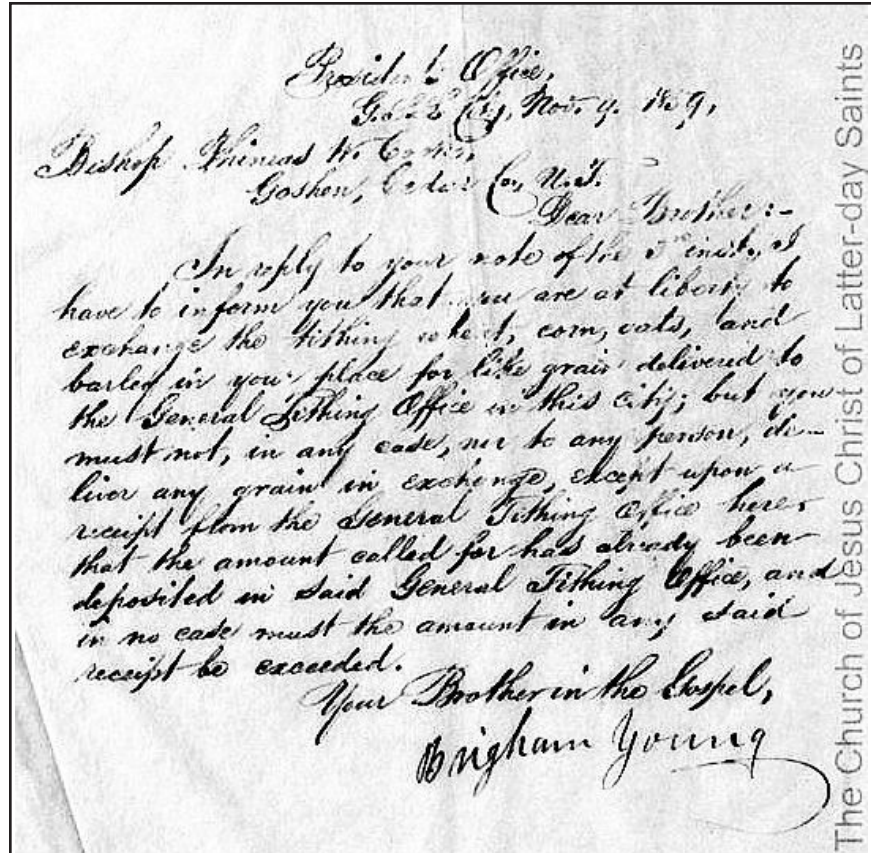 President's Office,
G. S. L. City, Nov. 9. 1859,
Bishop Phineas W. Cook,
Goshen, Cedar Co., U.T.
Dear Brother:-
In reply to your note of the inst., I
have to inform you that you are at liberty to
exchange the tithing wheat, corn, oats, and
barley in your place for like grain delivered to
the General Tithing Office in this city; but you
must not, in any case, nor to any person, de-
liver any grain in exchange, except upon a
receipt from the General Tithing Office here,
that the amount called for has already been
deposited in said General Tithing Office, and
in no case must the amount in any said
receipt be exceeded.
Your Brother in the Gospel,
Brigham Young
The Church of Jesus Christ of Latter-day Saints